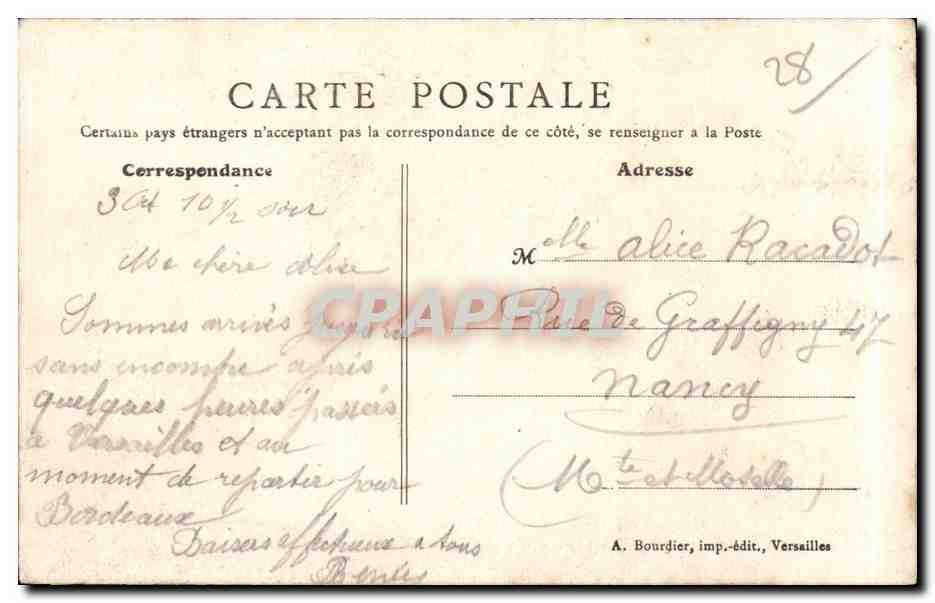 28
CARTE POSTALE
Certains pays étrangers n'acceptent pas la correspondance de ce côté, se renseigner a la Poste
Correspondance
3 Oct 10 1/2 soir
Ma chère Alice
Sommes arrivés jusqu'ici
sans encombre après
quelques heures passées
à Versailles et au
moment de repartir pour
Bordeaux
Baisers affectueux a tous
Adresse
Melle Alice Racadot
Rue de Graffigny 47
Nancy
(Mte et Moselle)
A. Bourdier, imp.-édit., Versailles
CPAPHIL